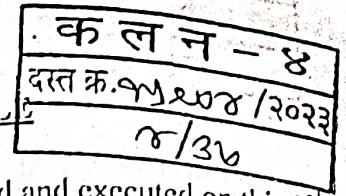 क ल न - ४
दस्त क्र. /२०२३
४/३७
d and executed on this